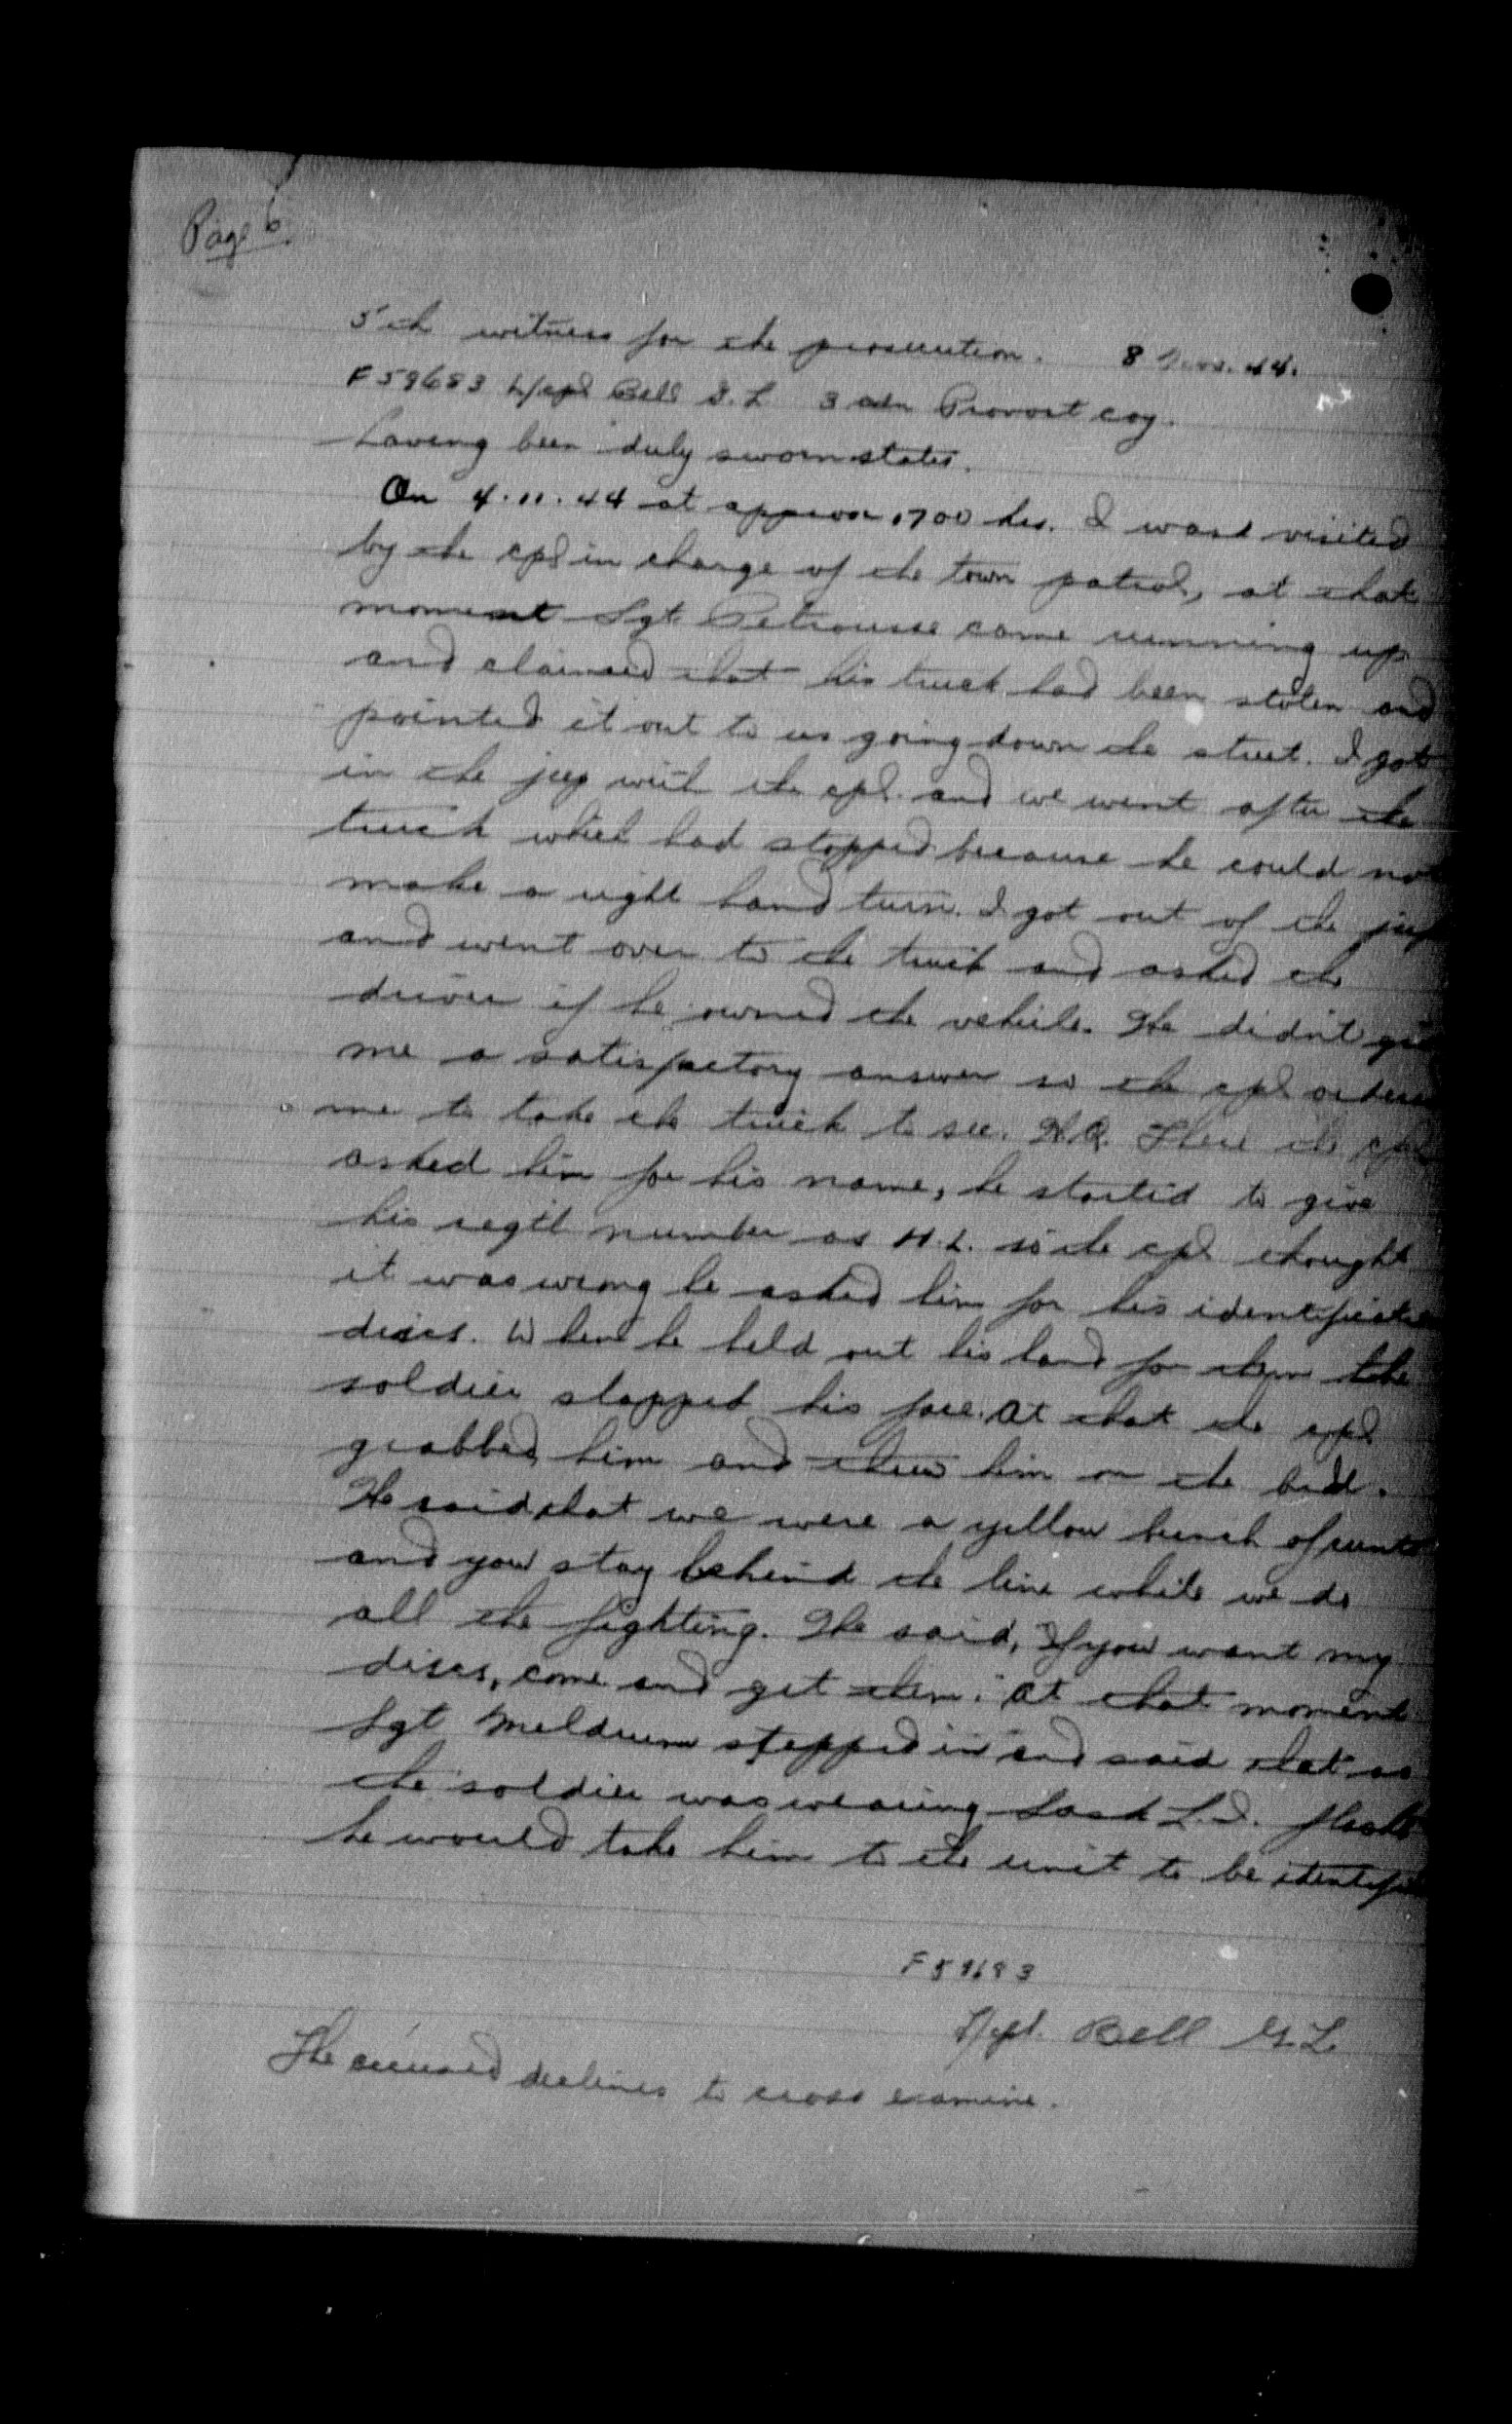 Page 6.
5th witness for the prosecution. 8 Nov. 44.
F59683 L/Cpl Bell G. L 3 Cdn Provost coy.
having been duly sworn states.
On 4.11.44 at approx 1700 hrs. I was visited
by the cpl in charge of the town patrol, at that
moment Sgt. came running up
and claimed that his truck had been stolen and
pointed it out to us going down the street. I got
in the jeep with the cpl. and we went after the
truck which had stopped because he could not
make a right hand turn. I got out of the jeep
and went over to the truck and asked the
driver if he owned the vehicle. He didn't give
me a satisfactory answer so the cpl ordered
me to take the truck to sec. H.Q. There the cpl
asked him for his name, he started to give
his reg'tl number as H.L. so the cpl thought
it was wrong he asked him for his
discs. When he held out his hand for them the
soldier slapped his face. At that the cpl
grabbed him and threw him on the bed.
He said that we were a yellow bunch of cunts
and you stay behind the line while we do
all the fighting. He said, If you want my
discs, come and get them." At that moment
Sgt Meldrum stepped in and said that as
the soldier was wearing Sask L.I. flashes
he would take him to the unit to be
F59683
L/Cpl. Bell G. L
The accused declines to cross examine.